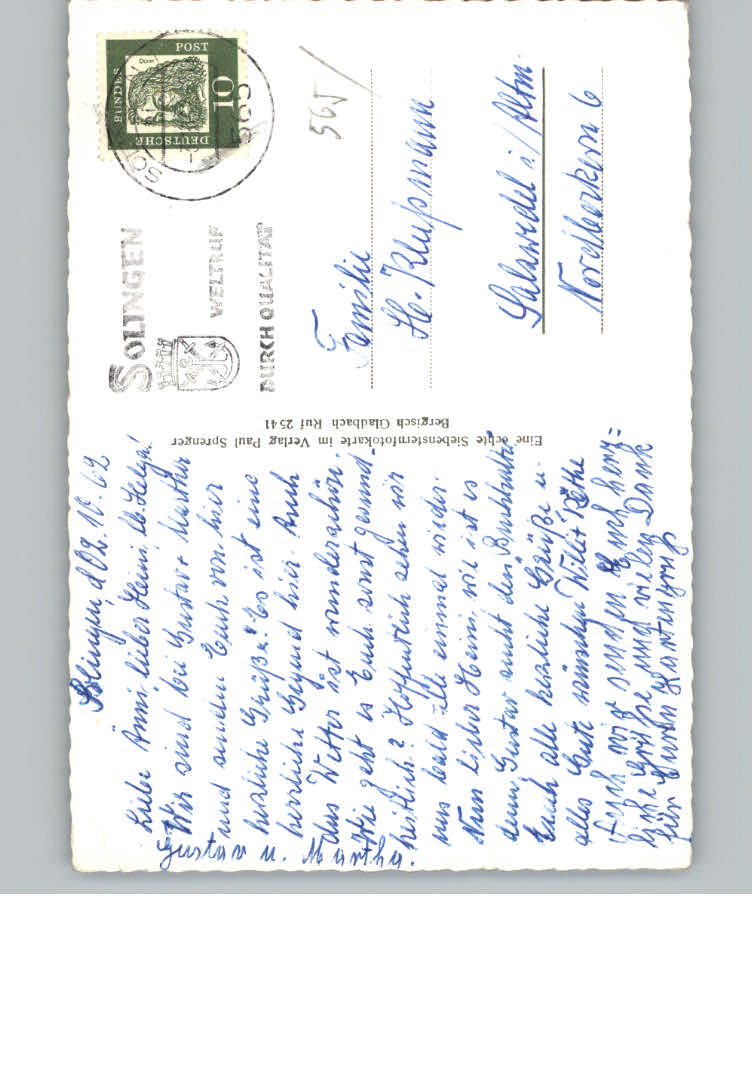 Solingen, d 02.10.62
Liebe Änni, lieber Heini, lb. Helga!
Wir sind bei Gustav + Martha
und senden Euch von hier
herzliche Grüße. Es ist eine
herrliche Gegend hier. Auch
das Wetter ist wunderschön.
Wie geht es Euch sonst gesund-
heitlich? Hoffentlich sehen wir
uns bald alle einmal wieder.
Nun lieber Heini, wie ist es
denn, Gustav sucht den
Euch alle herzliche Grüße u.
alles Gute wünschen Willi + Käthe
Auch wir senden Euch herz=
liche Grüße und vielen Dank
für Euren Kartengruß
Gustav u. Martha.
Eine echte Siebensternfotokarte im Verlag Paul Sprenger
Bergisch Gladbach Ruf 2541
SOLINGEN
WELTRUF
DURCH QUALITÄT
DEUTSCHE
BUNDES
POST
10
565
Familie
H. Klupmann
Salzwedel i/Altm.
6